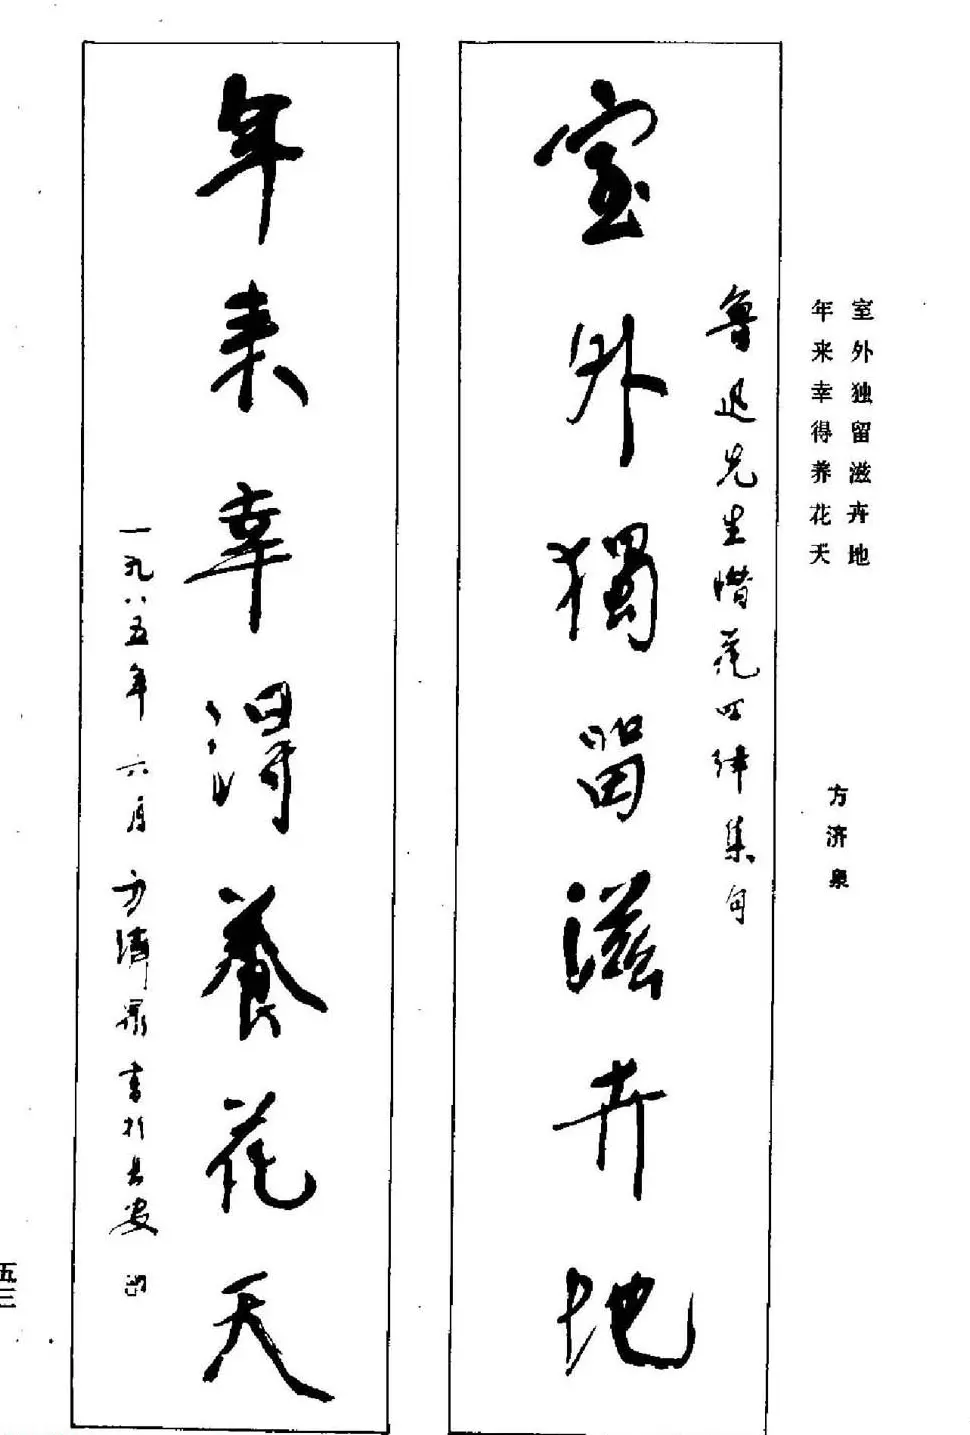 室外独留滋卉地
年来幸得养花天
方济泉
室外獨留滋卉地
魯迅先生惜花四律集句
年来幸得養花天
一九八五年六月方濟泉書於長安
五三